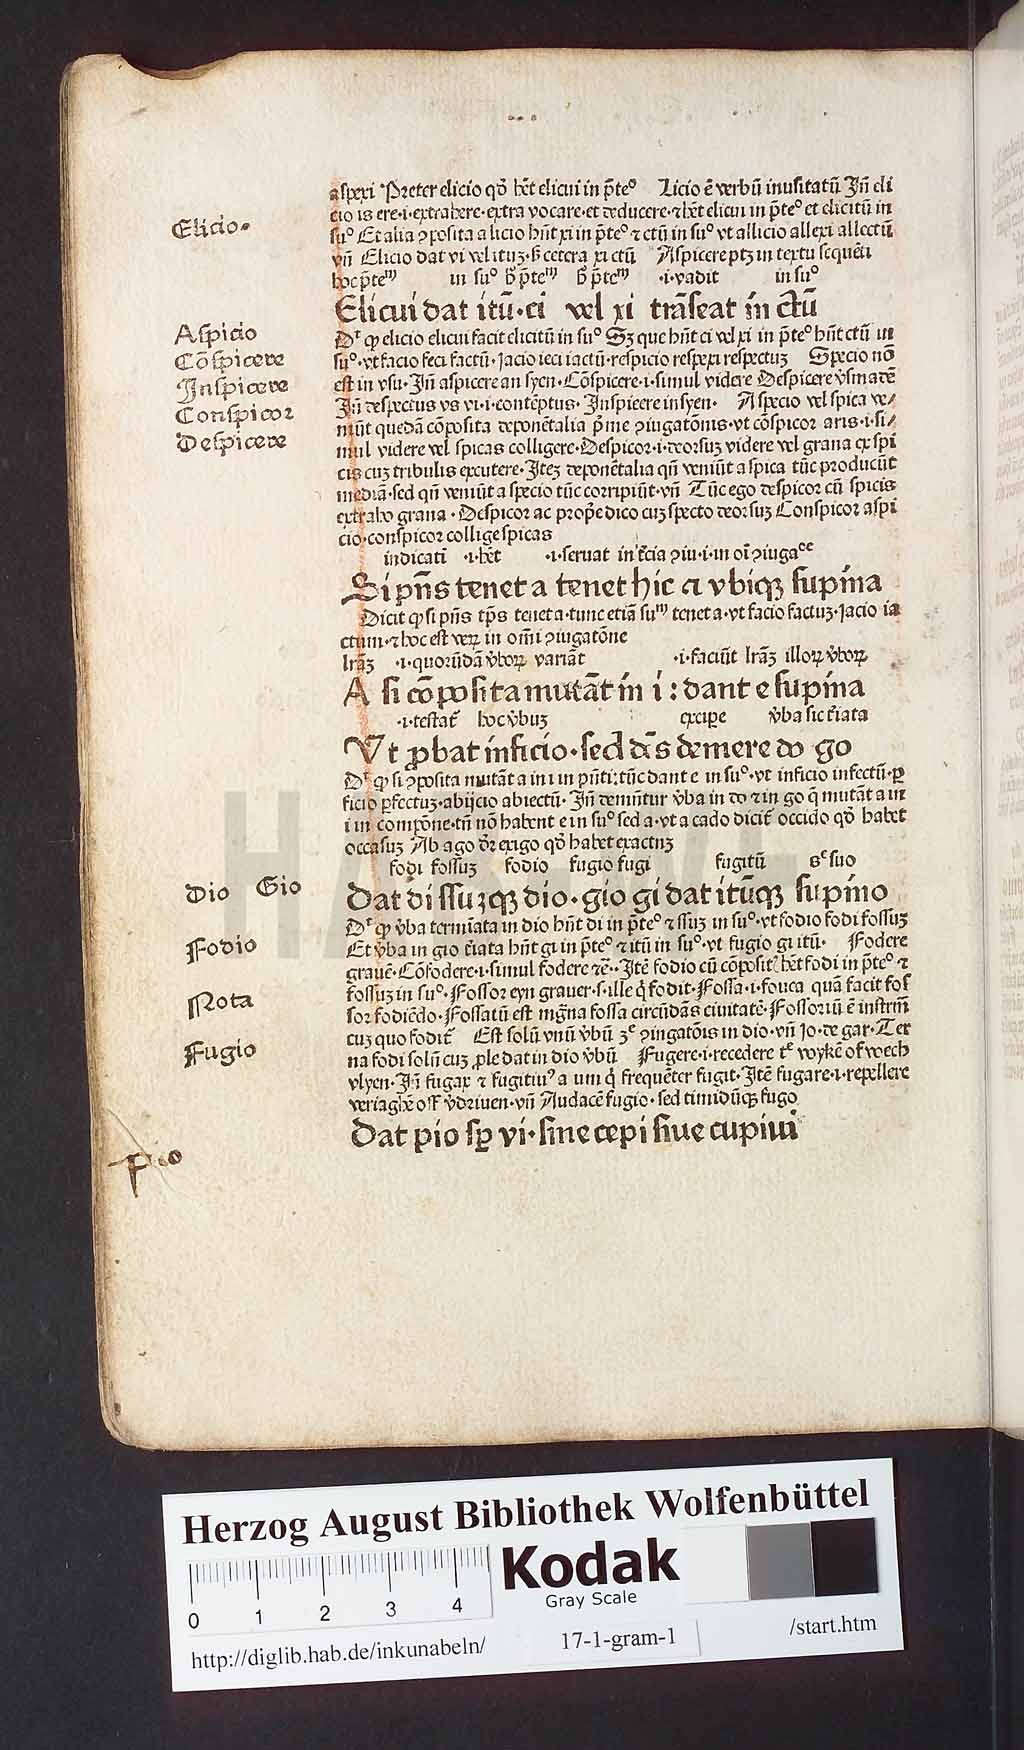 aspexi Preter elicio qd̄ hēt elicui in p̄teº Licio ē verbū inusitatū Jn̄ eli
cio is ere·i·extrahere·extra vocare·et deducere·⁊ hēt elicui in p̄teº et elicitū in
Elicio·
suº Et alia ꝯposita a licio hn̄t xi in p̄teº ⁊ ctū in suº vt allicio allexi allectū
vn̄ Elicio dat vi vel ituꝫ· s̄ cetera xi ctū Aspicere ptꝫ in textu sequēti
hoc p̄teᵐ in suº p̄teᵐ p̄teᵐ ·i·vadit in suº
Elicui dat itū·ci vel xi trāseat in ctū
Aspicio
Dʳ ꝙ elicio elicui facit elicitū in suº Sꝫ que hn̄t ci vel xi in p̄teº hn̄t ctū in
Cōspicere
suº·vt facio feci factū·Jacio ieci iactū·respicio respexi respectuꝫ Specio nō
Inspicere
est in vsu·Jn̄ aspicere an syen·Cōspicere·i·simul videre Despicere v̉smadē
Conspicor
Jn̄ despectus vs vi·i·contēptus·Inspicere insyen· A specio vel spica ve/
Despicere
niūt quedā cōposita deponētalia p̄me ꝯiugatōnis·vt cōspicor aris·i·si/
mul videre vel spicas colligere·Despicor·i·deorsuꝫ videre vel grana ex spi
cis cuꝫ tribulis excutere·Iteꝫ deponētalia qn̄ veniūt a spica tūc producūt
mediā·sed qn̄ veniūt a specio tūc corripiūt·vn̄ Tūc ego despicor cū spicis
extraho grana·Despicor ac prop̄e dico cuꝫ specto deorsuꝫ Conspicor aspi
cio·conspicor collige spicas
indicati ·i·hēt ·i·seruat in t̄cia ꝯiu·i·in oī ꝯiugaᶜᵉ
Si pn̄s tenet a tenet hic a vbiqꝫ supina
Dicit ꝙ si pn̄s tp̄s tenet a·tunc etiā suᵐ tenet a·vt facio factuꝫ·Jacio ia
ctum·⁊ hoc est veꝝ in omī ꝯiugatōne
lrāꝫ ·i·quorūdā v̉boꝝ variāt ·i·faciūt lrāꝫ illoꝝ v̉boꝝ
A si cōposita mutāt in i: dant e supina
·i·testat̄ hoc v̉buꝫ excipe v̉ba sic t̄iata
Vt ꝓbat inficio·sed dēs demere do go
Dʳ ꝙ si ꝯposita mutāt a in i in pn̄ti:tūc dant e in suº·vt inficio infectū·ꝑ
ficio ꝑfectuꝫ·abijcio abiectū·Jn̄ demūtur v̉ba in do ⁊ in go q̄ mutāt a in
i in compōne·tn̄ nō habent e in suº sed a·vt a cado dicit̄ occido qd̄ habet
occasuꝫ Ab ago dr̄ exigo qd̄ habet exactuꝫ
fodi fossuꝫ fodio fugio fugi fugitū sᶜ suo
Dio Gio
Dat di ssuꝫqꝫ dio·gio gi dat itūqꝫ supino
Dʳ ꝙ v̉ba termīata in dio hn̄t di in p̄teº ⁊ ssuꝫ in suº·vt fodio fodi fossuꝫ
Fodio
Et v̉ba in gio t̄iata hn̄t gi in p̄teº ⁊ itū in suº·vt fugio gi itū· Fodere
grauē·Cōfodere·i·simul fodere ⁊c̄·Itē fodio cū cōposit hēt fodi in p̄teº ⁊
Nota
fossuꝫ in suº·Fossor eyn grauer·s·ille q̄ fodit·Fossa·i·fouea quā facit fos
sor fodiēdo·Fossatū est mḡna fossa circūdās ciuitatē·Fossoriū ē instrm̄
cuꝫ quo fodit̄ Est solū vnū v̉bū 3ᵉ ꝯingatōis in dio·vn̄ Jo·de gar·Ter
Fugio
na fodi solū cuꝫ ꝓle dat in dio v̉bū Fugere·i·recedere tᵉ wykē of woech
vlyen·Jn̄ fugax ⁊ fugitiuꝰ a um q̄ frequēter fugit·Itē fugare·i·repellere
veriaghē off v̉driuen·vn̄ Audacē fugio·sed timidūqꝫ fugo
Dat pio sꝑ vi·sine cepi siue cupiui
Pio
HAB
Herzog August Bibliothek Wolfenbüttel
Kodak
Gray Scale
0 1 2 3 4
http://diglib.hab.de/inkunabeln/ 17-1-gram-1 /start.htm